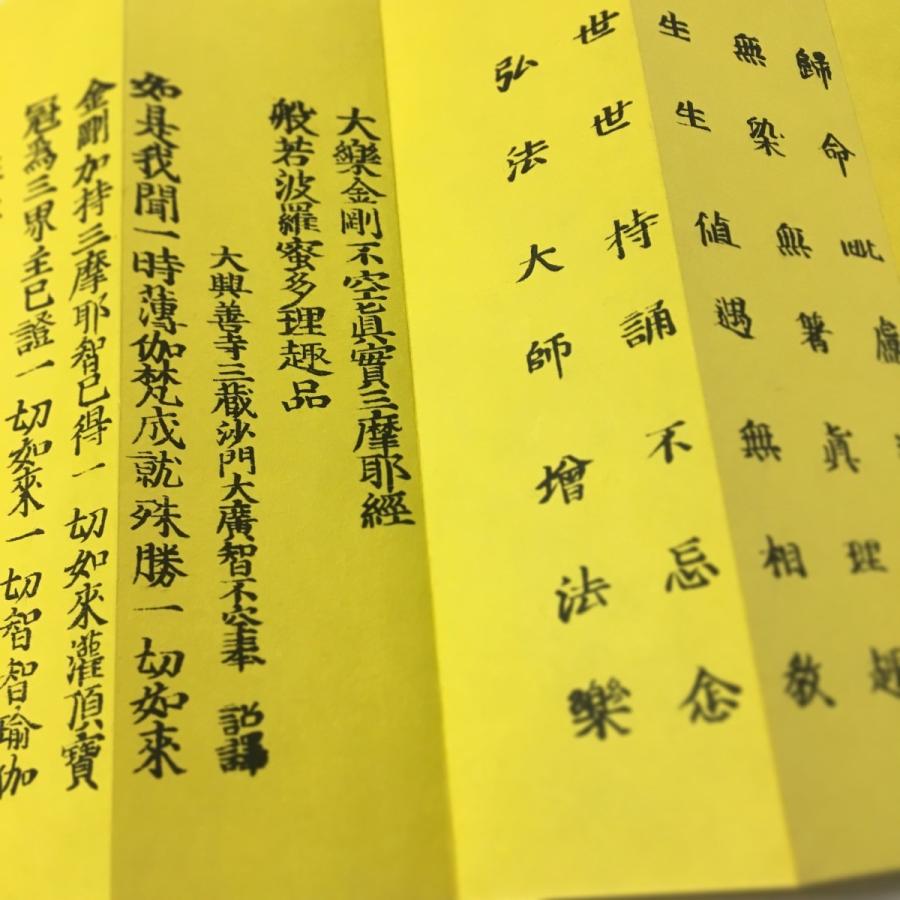 歸命毗盧
無染無著眞理趣
生生値遇無相教
世世持誦不忘念
弘法大師增法樂
大樂金剛不空眞實三摩耶經
般若波羅蜜多理趣品
大興善寺三藏沙門大廣智不空奉 詔譯
如是我聞一時薄伽梵成就殊勝一切如來
金剛加持三摩耶智已得一切如來灌頂寶
冠爲三界主已證一切如來一切智智瑜伽